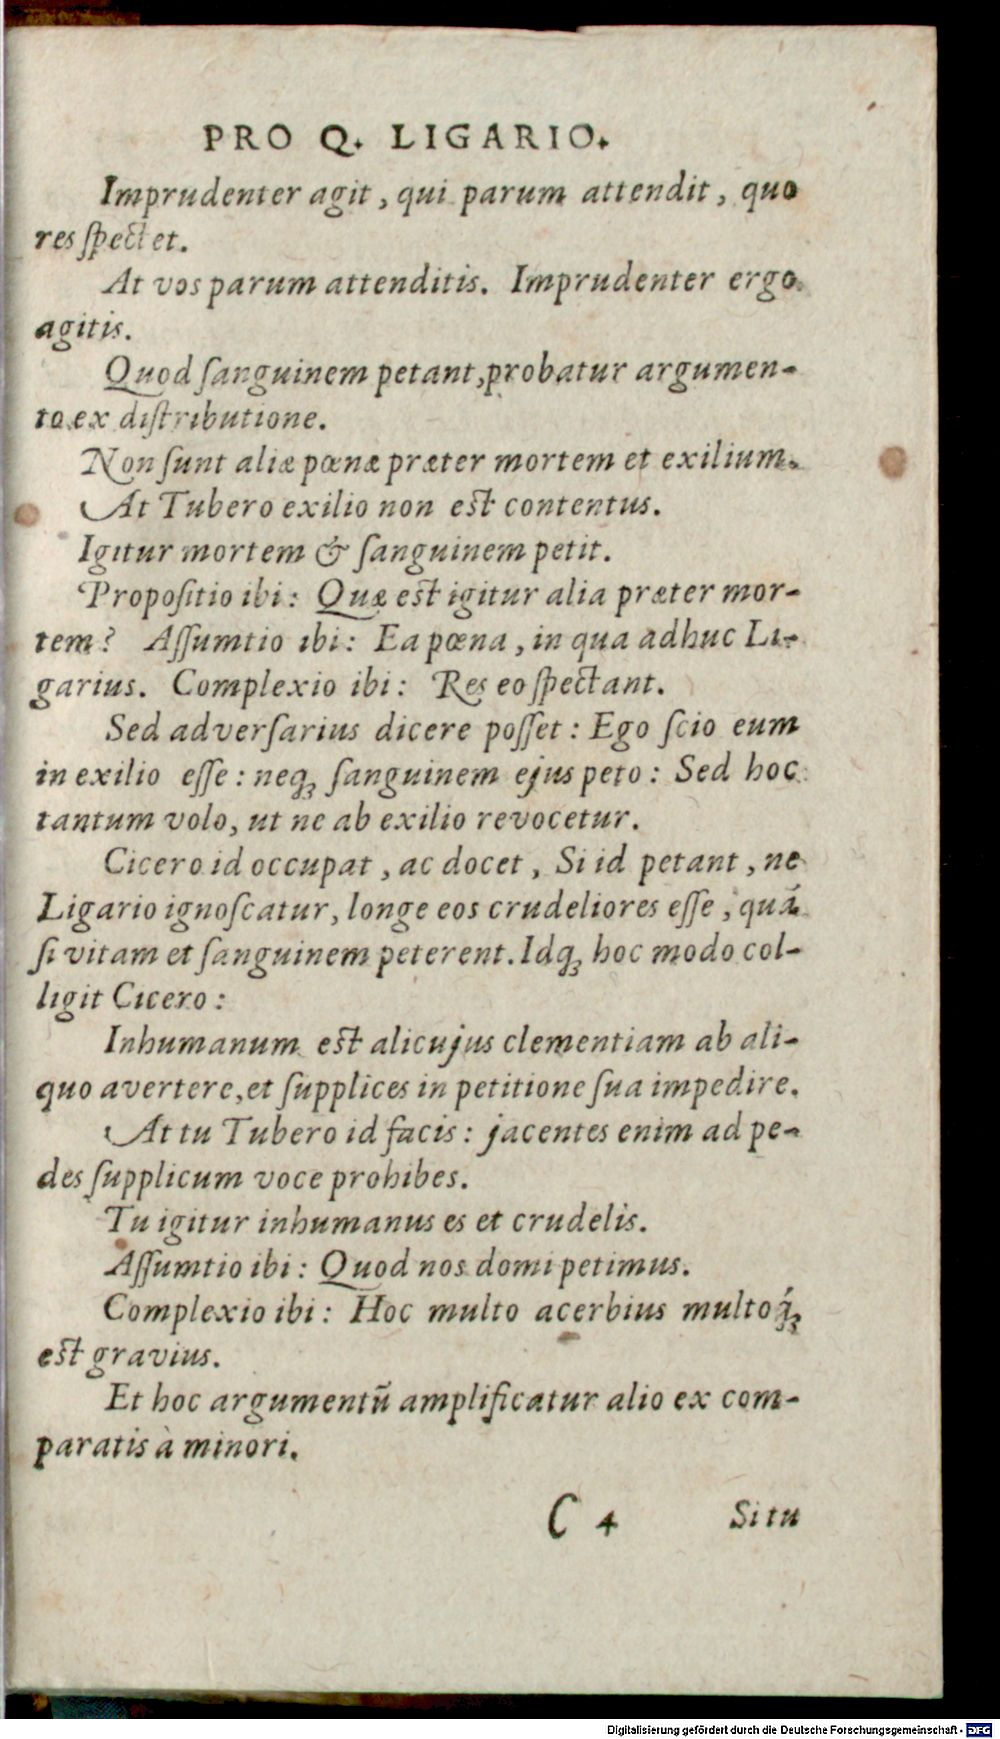 PRO Q. LIGARIO.
Imprudenter agit, qui parum attendit, quo
res ſpectet.
At vos parum attenditis. Imprudenter ergo
agitis.
Quod ſanguinem petant, probatur argumen-
to ex diſtributione.
Non ſunt aliæ pœnæ præter mortem et exilium.
At Tubero exilio non eſt contentus.
Igitur mortem & ſanguinem petit.
Propoſitio ibi: Quæ eſt igitur alia præter mor-
tem? Aſſumtio ibi: Ea pœna, in qua adhuc Li-
garius. Complexio ibi: Res eo ſpectant.
Sed adverſarius dicere poſſet: Ego ſcio eum
in exilio eſſe: neq; ſanguinem ejus peto: Sed hoc
tantum volo, ut ne ab exilio revocetur.
Cicero id occupat, ac docet, Si id petant, ne
Ligario ignoſcatur, longe eos crudeliores eſſe, quã
ſi vitam et ſanguinem peterent. Idq; hoc modo col-
ligit Cicero:
Inhumanum eſt alicujus clementiam ab ali-
quo avertere, et ſupplices in petitione ſua impedire.
At tu Tubero id facis: jacentes enim ad pe-
des ſupplicum voce prohibes.
Tu igitur inhumanus es et crudelis.
Aſſumtio ibi: Quod nos domi petimus.
Complexio ibi: Hoc multo acerbius multoq́;
eſt gravius.
Et hoc argumentũ amplificatur alio ex com-
paratis à minori.
C 4 Si tu
Digitalisierung gefördert durch die Deutsche Forschungsgemeinschaft - DFG